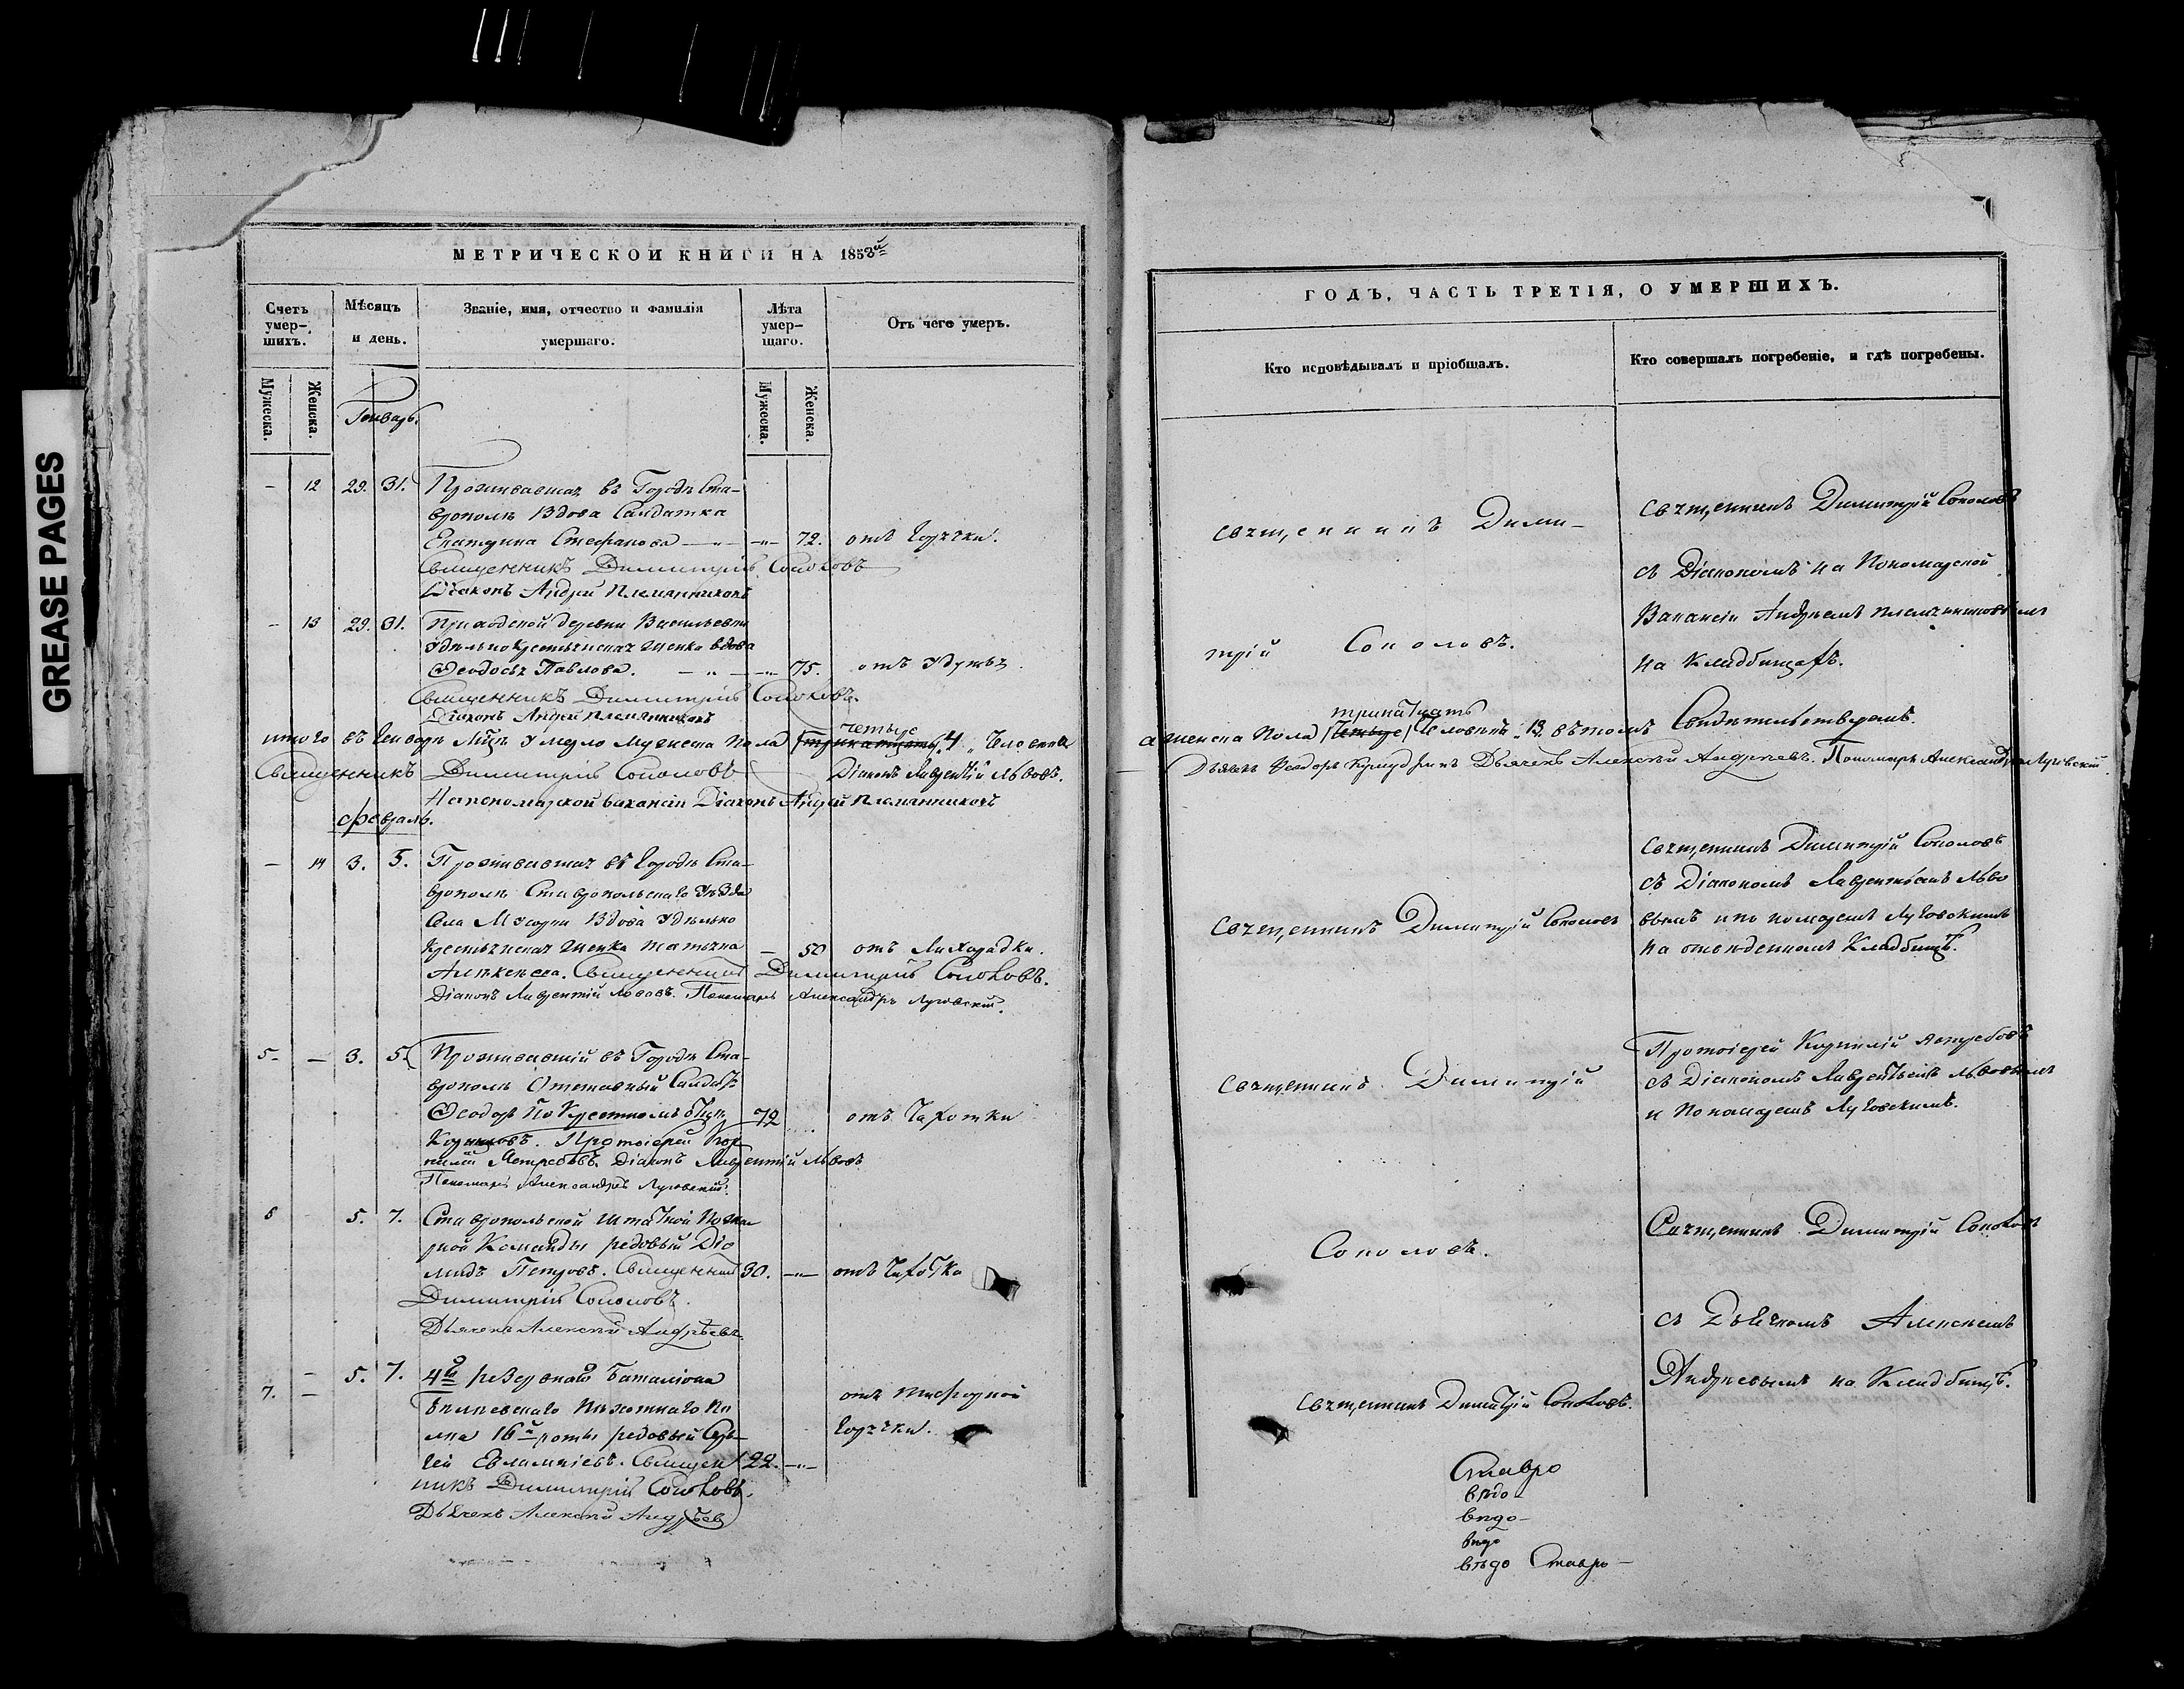 GREASE PAGES
МЕТРИЧЕСКОЙ КНИГИ НА 1858й
Счетъ умер-шихъ.
Мѣсяцъ и день.
Званіе, имя, отчество и фамилія умершаго.
Лѣта умер-шаго.
Отъ чего умеръ.
Мужеска.
Женска.
Генварь.
Мужеска.
Женска.
- 12 29. 31. Проживавшая въ Городѣ Ста-
врополѣ Вдова Салдатка
Екатерина Стефанова 72. отъ Горячки.
Священникъ Димитрій Соколовъ
Діаконъ Андрей Племянниковъ
- 13 29. 31. Приходской деревни Васильевки
Удѣльнокрестьянская женка вдова
Феодосья Павлова. 75. отъ Удушья
Священникъ Димитрій Соколовъ.
Діаконъ Андрей Племянниковъ
четыре
итого въ Генварѣ М-цѣ Умерло Мужеска пола тринатцать 4 Человека
Священникъ Димитрій Соколовъ Діаконъ Лаврентій Львовъ.
На пономарской вакансіи Діаконъ Андрей Племянниковъ
Февраль.
- 14 3. 5. Проживавшая въ Городѣ Ста-
врополѣ Ставропольскаго Уѣзда
Села Мусорки Вдова Удѣльно
крестьянская женка Татьяна 50 отъ Лихорадки.
Алексѣева. Священникъ Димитрій Соколовъ.
Діаконъ Лаврентій Львовъ. Пономарь Александръ Луговскій.
5- - 3. 5. Проживавшій въ Городѣ Ста-
врополѣ Отставный Салдатъ
Феодоръ по Крестномъ Отцу 72 отъ Чахотки
Корниловъ. Протоіерей Кор
нилій Ястребовъ. Діаконъ Лаврентій Львовъ
Пономарь Александръ Луговскій.
6 - 5. 7. Ставропольской штатной Пожар
ной Команды рядовый Діо
мидъ Петровъ. Священникъ 30. отъ Чахотки
Димитрій Соколовъ.
Дьячекъ Алексѣй Андрѣевъ.
7. - 5. 7. 4го резервнаго Баталіона
Бѣлевскаго Пѣхотнаго По отъ тифозной
лка 16й роты рядовый Сер- горячки.
гей Евлампіевъ. Священ 22.
никъ Димитрій Соколовъ.
Дьячекъ Алексѣй Андрѣевъ
ГОДЪ, ЧАСТЬ ТРЕТІЯ, О УМЕРШИХЪ.
Кто исповѣдывалъ и пріобщалъ.
Кто совершалъ погребеніе, и гдѣ погребены.
Священникъ Дими-
трій Соколовъ.
Священникъ Димитрій Соколовъ
съ Діакономъ на Пономарской
Вакансіи Андреемъ Племянниковымъ
на Кладбищахъ.
тринатцать
а женска пола четыре Человѣкъ 13 въ томъ Свидѣтельствуемъ.
Дьячекъ Феодоръ Дьячекъ Алексѣй Андрѣевъ. Пономарь Александръ Луговскій
Священникъ Димитрій Соколовъ
Священникъ Димитрій Соколовъ
съ Діакономъ Лаврентьемъ Льво
вымъ и пономаремъ Луговскимъ
на отведенномъ Кладбищѣ.
Священникъ Димитрій
Протоіерей Корнилій Ястребовъ
съ Діакономъ Лаврентьемъ Львовымъ
и Пономаремъ Луговскимъ.
Соколовъ.
Священникъ Димитрій Соколовъ
съ Дьячкомъ Алексѣемъ
Андреевымъ на Кладбищѣ.
Священникъ Димитрій Соколовъ.
Ставро
вѣдо
вѣдо-
вѣдо
вѣдо Ставро-